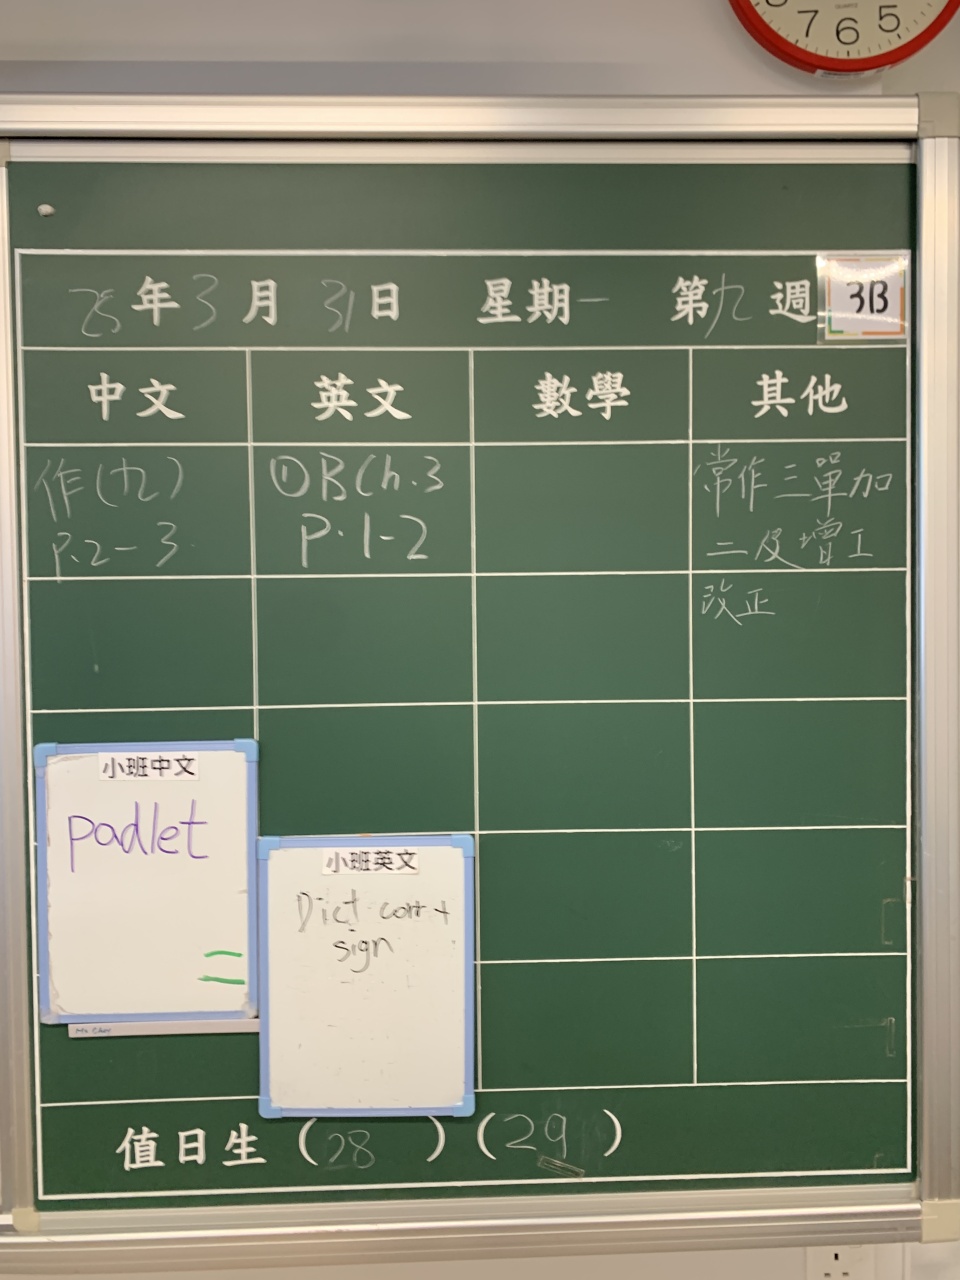 7 6 5
QUARTZ
25年3月31日 星期一 第九週 3B
中文 英文 數學 其他
作(九)
P.2-3
①B Ch.3
P.1-2
常作三單加
二及增工
改正
小班中文
padlet
小班英文
Dict corr +
sign
值日生(28)(29)